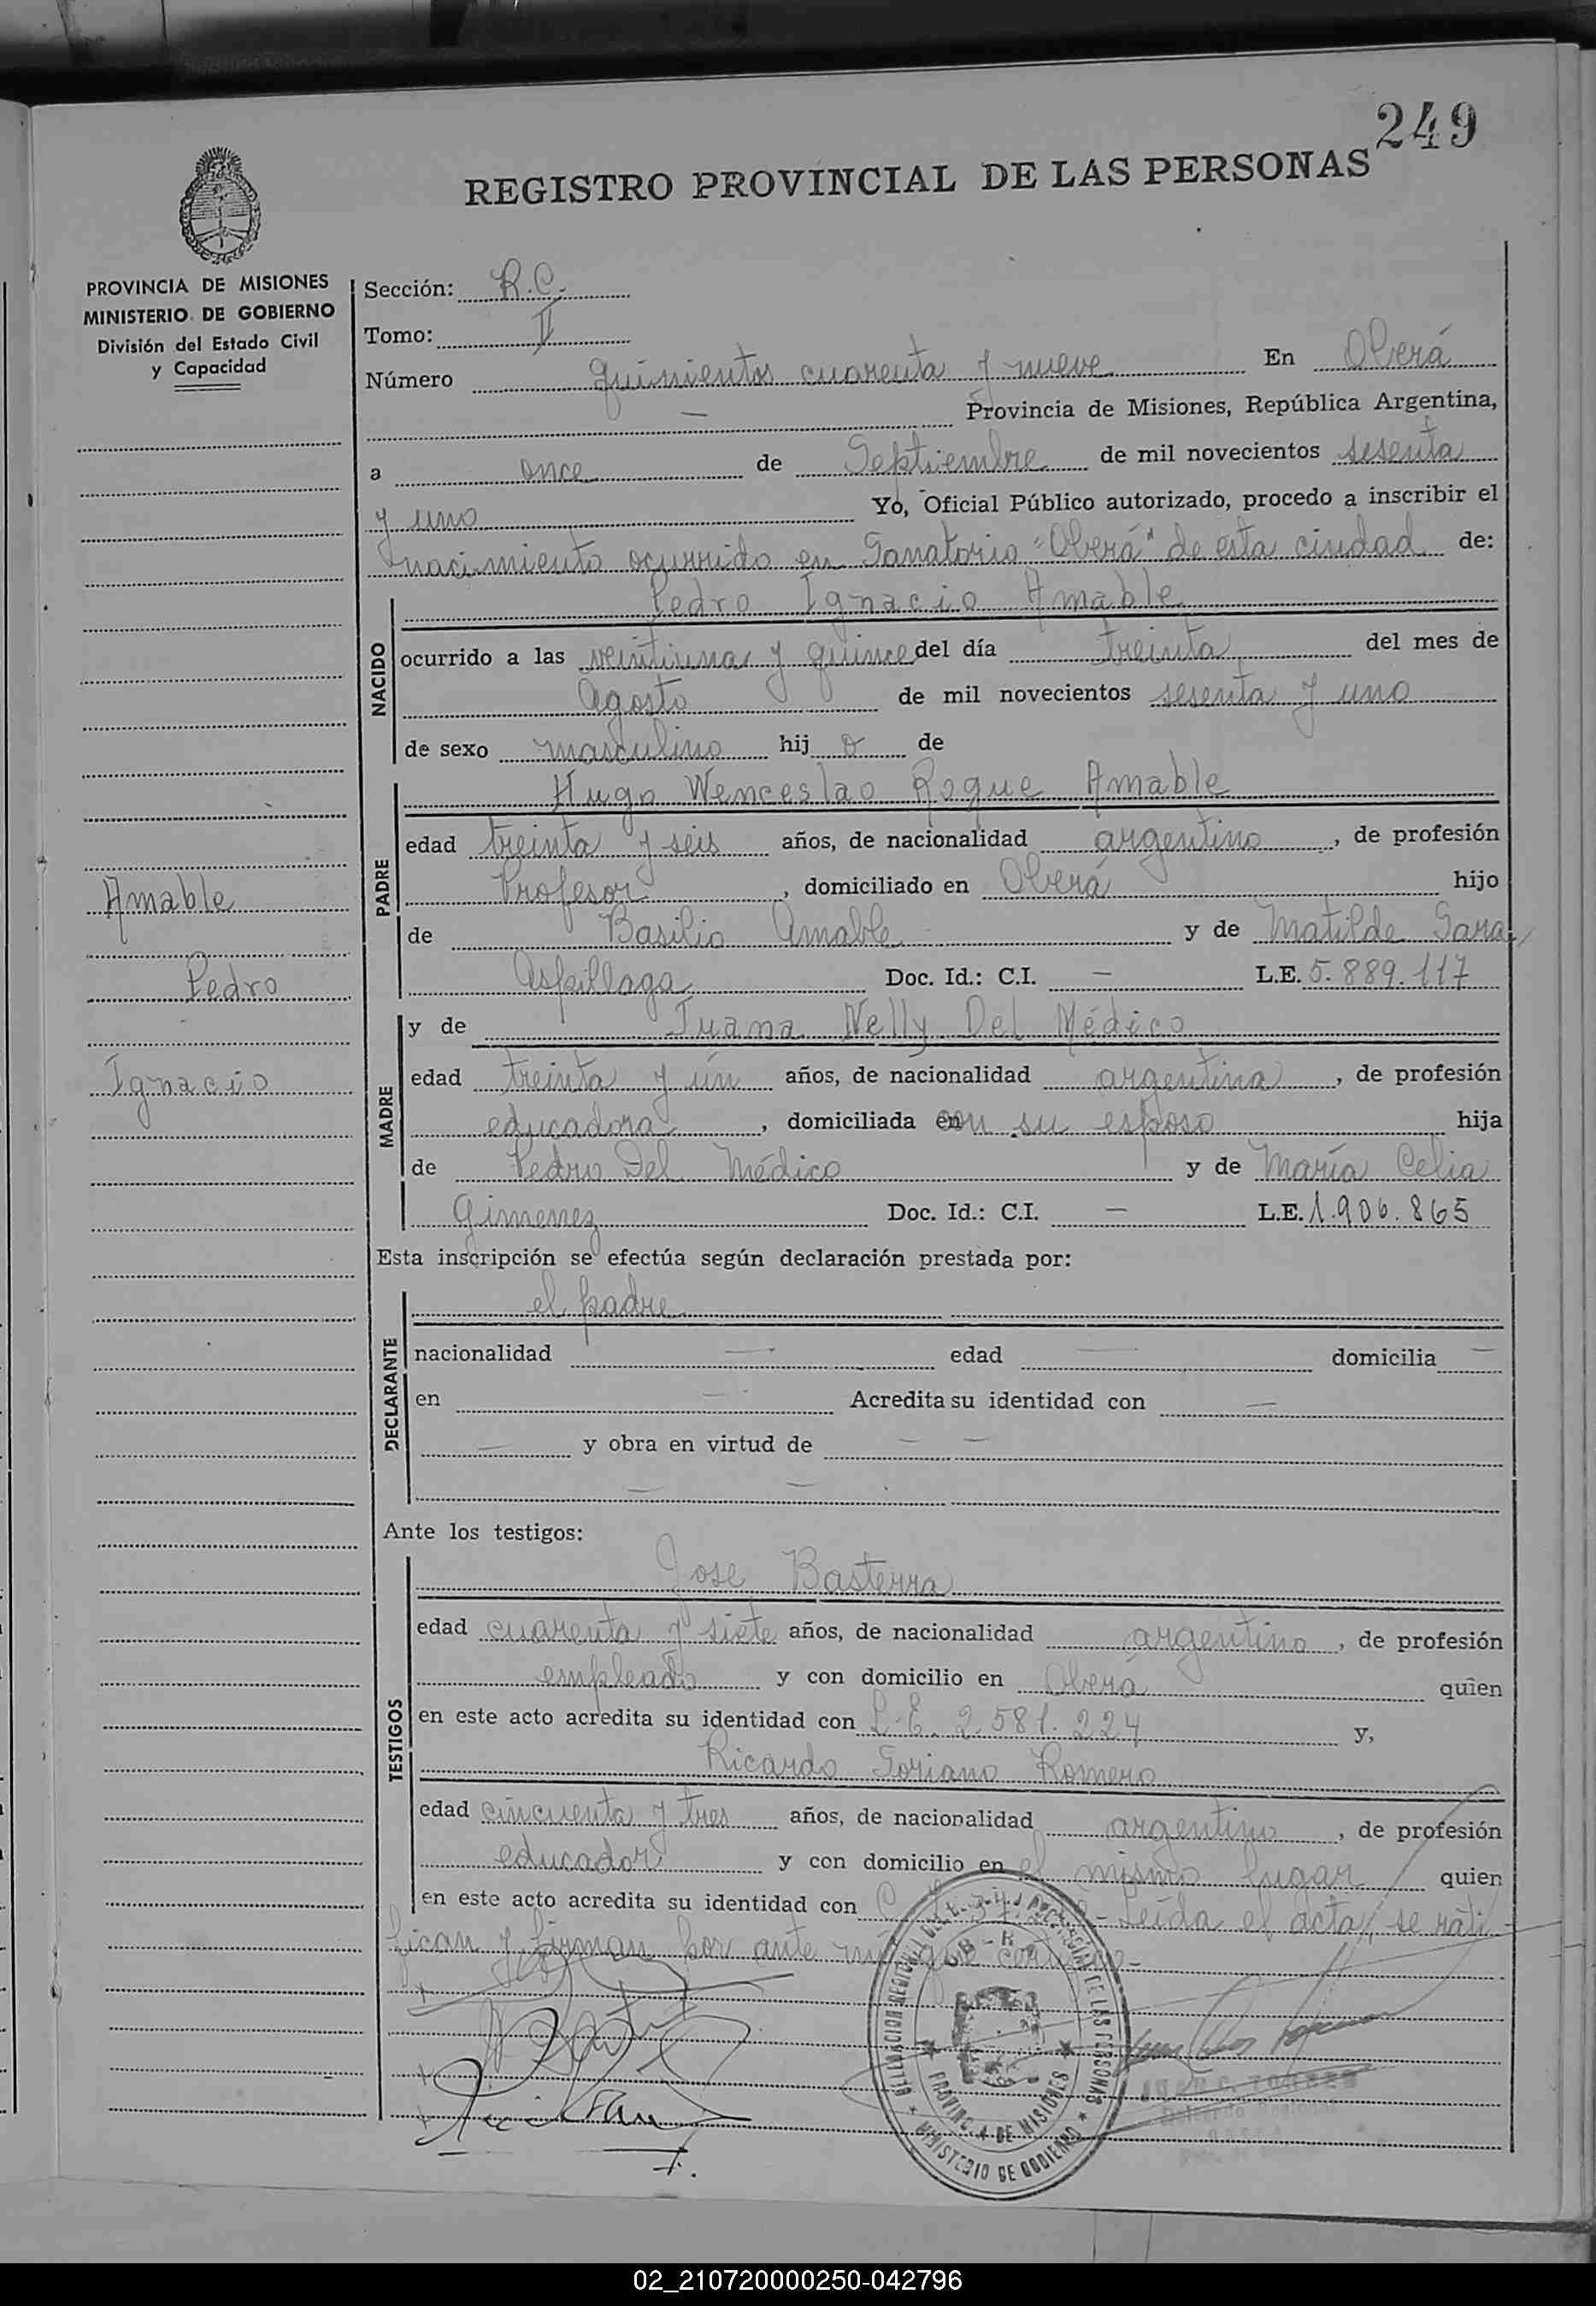 249
REGISTRO PROVINCIAL DE LAS PERSONAS
PROVINCIA DE MISIONES
MINISTERIO DE GOBIERNO
División del Estado Civil
y Capacidad
Amable
Pedro
Ignacio
Sección: R.C.
Tomo: II
Número quinientos cuarenta y nueve En Oberá
— Provincia de Misiones, República Argentina,
a once de Septiembre de mil novecientos sesenta
y uno Yo, Oficial Público autorizado, procedo a inscribir el
nacimiento ocurrido en Sanatorio "Oberá" de esta ciudad de:
NACIDO
Pedro Ignacio Amable
ocurrido a las veintiuna y quince del día treinta del mes de
Agosto de mil novecientos sesenta y uno
de sexo masculino hij o de
PADRE
Hugo Wenceslao Roque Amable
edad treinta y seis años, de nacionalidad argentino, de profesión
Profesor, domiciliado en Oberá hijo
de Basilio Amable y de Matilde Sara
Aspillaga Doc. Id.: C.I. — L.E. 5.889.117
MADRE
y de Juana Nelly Del Médico
edad treinta y ún años, de nacionalidad argentina, de profesión
educadora, domiciliada en con su esposo hija
de Pedro Del Médico y de María Celia
Gimenez Doc. Id.: C.I. — L.E. 1.906.865
Esta inscripción se efectúa según declaración prestada por:
DECLARANTE
el padre
nacionalidad — edad — domicilia —
en — Acredita su identidad con —
— y obra en virtud de — —
— —
Ante los testigos:
TESTIGOS
Jose Basterra
edad cuarenta y siete años, de nacionalidad argentino, de profesión
empleado y con domicilio en Oberá quien
en este acto acredita su identidad con L.E. 2.581.224 y,
Ricardo Soriano Romero
edad cincuenta y tres años, de nacionalidad argentino, de profesión
educador y con domicilio en el mismo lugar quien
en este acto acredita su identidad con Leída el acta, se rati-
fican y firman por ante mí que certifico-
PROVINCIA DE MISIONES
MINISTERIO DE GOBIERNO
DE LAS PERSONAS
02_210720000250-042796